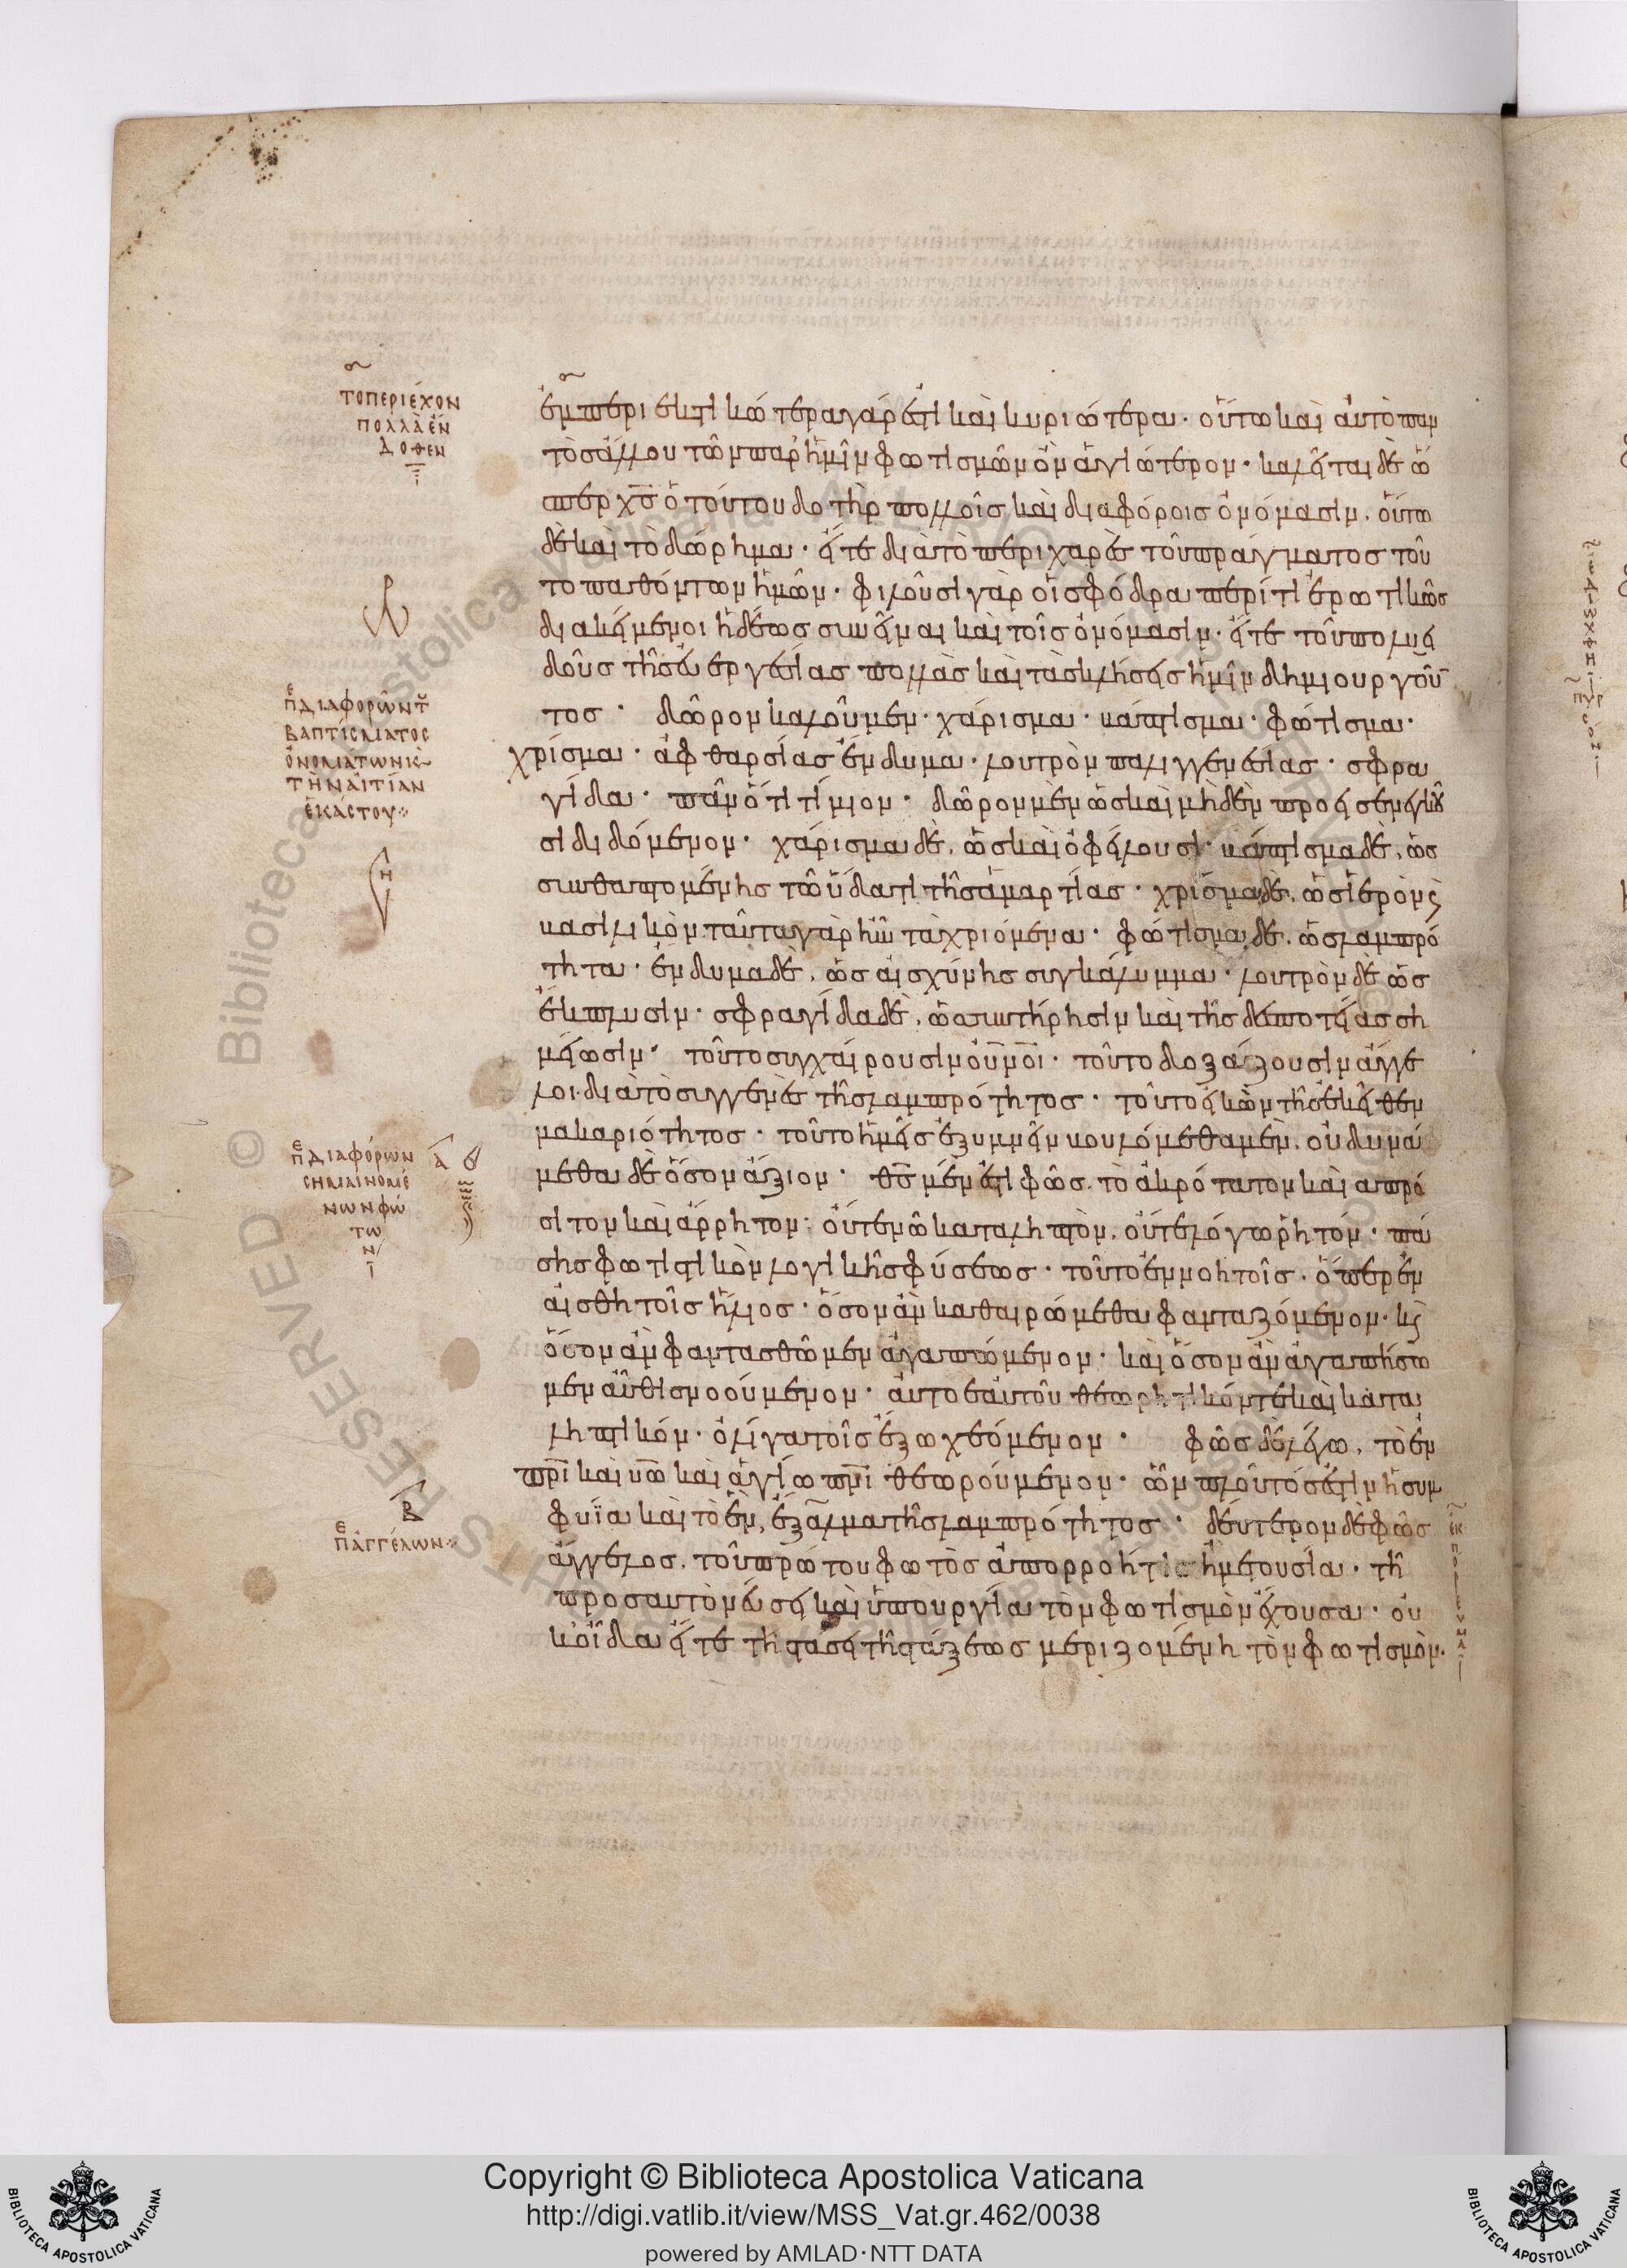 τὸ περιέχον
πολλὰ ἔν
δοθεν
ἐμπεριεκτικώτερα γάρ ἐστι καὶ κυριώτερα· οὕτω καὶ αὐτὸ παν
τὸς ἄλλου τῶν παρ' ἡμῖν φωτισμῶν ὂν ἁγιώτερον· καλεῖται δὲ ὥ
σπερ χς ὁ τούτου δοτὴρ πολλοῖς καὶ διαφόροις ὀνόμασιν, οὕτω
δὲ καὶ τὸ δώρημα· εἴτε διὰ τὸ περιχαρὲς τοῦ πράγματος τοῦ
το παθόντων ἡμῶν· φιλοῦσι γὰρ οἱ σφόδρα περί τι ἐρωτικῶς
διακείμενοι ἡδέως συνεῖναι καὶ τοῖς ὀνόμασιν· εἴτε τοῦ πολυει
δοῦς τῆς εὐεργεσίας πολλὰς καὶ τὰς κλήσεις ἡμῖν δημιουργοῦν
τος· δῶρον καλοῦμεν· χάρισμα· βάπτισμα· φώτισμα·
χρίσμα· ἀφθαρσίας ἔνδυμα· λουτρὸν παλιγγενεσίας· σφρα
γίδα· πᾶν ὅτι τίμιον· δῶρον μὲν ὡς καὶ μηδὲν προεισενεγκοῦ
σι διδόμενον· χάρισμα δὲ, ὡς καὶ ὀφείλουσι· βάπτισμα δὲ, ὡς
συνθαπτομένης τῷ ὕδατι τῆς ἁμαρτίας· χρίσμα δὲ, ὡς ἱερὸν κ
βασιλικόν· ταῦτα γὰρ ἦν τὰ χριόμενα· φώτισμα δὲ, ὡς λαμπρό
τητα· ἔνδυμα δὲ, ὡς αἰσχύνης συγκάλυμμα· λουτρὸν δὲ ὡς
ἔκπλυσιν· σφραγίδα δὲ, ὡς συντήρησιν καὶ τῆς δεσποτείας ση
μείωσιν· τοῦτο συγχαίρουσιν οὐνοι· τοῦτο δοξάζουσιν ἄγγε
λοι· διὰ τὸ συγγενὲς τῆς λαμπρότητος· τοῦτο εἰκὼν τῆς ἐκεῖθεν
μακαριότητος· τοῦτο ἡμεῖς ἐξυμνεῖν βουλόμεθα μὲν, οὐ δυνά
μεθα δὲ ὅσον ἄξιον· θς μέν ἐστι φῶς, τὸ ἀκρότατον καὶ ἀπρό
σιτον καὶ ἄρρητον· οὔτε νῷ καταληπτὸν, οὔτε λόγῳ ῥητόν· πά
σης φωτιστικὸν λογικῆς φύσεως· τοῦτο ἐν νοητοῖς· ὅπερ ἐν
αἰσθητοῖς ἥλιος· ὅσον ἂν καθαιρώμεθα φανταζόμενον· κ
ὅσον ἂν φαντασθῶμεν ἀγαπώμενον· καὶ ὅσον ἂν ἀγαπήσω
μεν αὖθις νοούμενον· αὐτὸ ἑαυτοῦ θεωρητικόν τε καὶ κατα
ληπτικόν· ὀλίγα τοῖς ἔξω χεόμενον· φῶς δὲ λέγω, τὸ ἐν
πρι καὶ υω καὶ ἁγίῳ πνι θεωρούμενον· ὧν πλοῦτός ἐστιν ἡ συμ
φυΐα καὶ τὸ ἓν, ἔξαλμα τῆς λαμπρότητος· δεύτερον δὲ φῶς
ἄγγελος, τοῦ πρώτου φωτὸς ἀπορροή τις ἢ μετουσία· τῇ
πρὸς αὐτὸ νεύσει καὶ ὑπουργίᾳ τὸν φωτισμὸν ἔχουσα· οὐ
κ οἶδα εἴτε τῇ τάσει τῆς τάξεως μεριζομένη τὸν φωτισμόν·
πε διαφορῶν τοῦ
βαπτίσματος
ὀνομάτων κ
τὴν αἰτίαν
ἑκάστου
πε διαφόρων
σημαινομέ
νων φώ
των
Β
πε ἀγγέλων
Copyright © Biblioteca Apostolica Vaticana
http://digi.vatlib.it/view/MSS_Vat.gr.462/0038
powered by AMLAD·NTT DATA
BIBLIOTECA APOSTOLICA VATICANA
BIBLIOTECA APOSTOLICA VATICANA